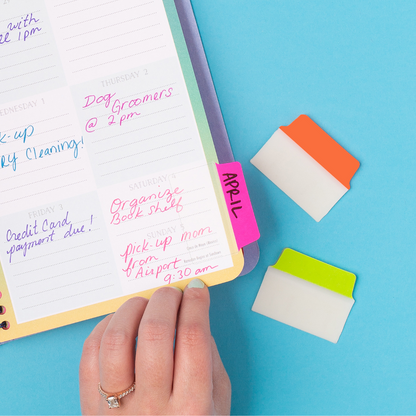 with
1pm
THURSDAY 2
Dog
Groomers
@ 2pm
WEDNESDAY 1
k-up
ry Cleaning!
SATURDAY 4
Organize
Book shelf
FRIDAY 3
Credit Card
payment due!
SUNDAY 5
Pick-up mom
from
Airport
9:30 am
APRIL